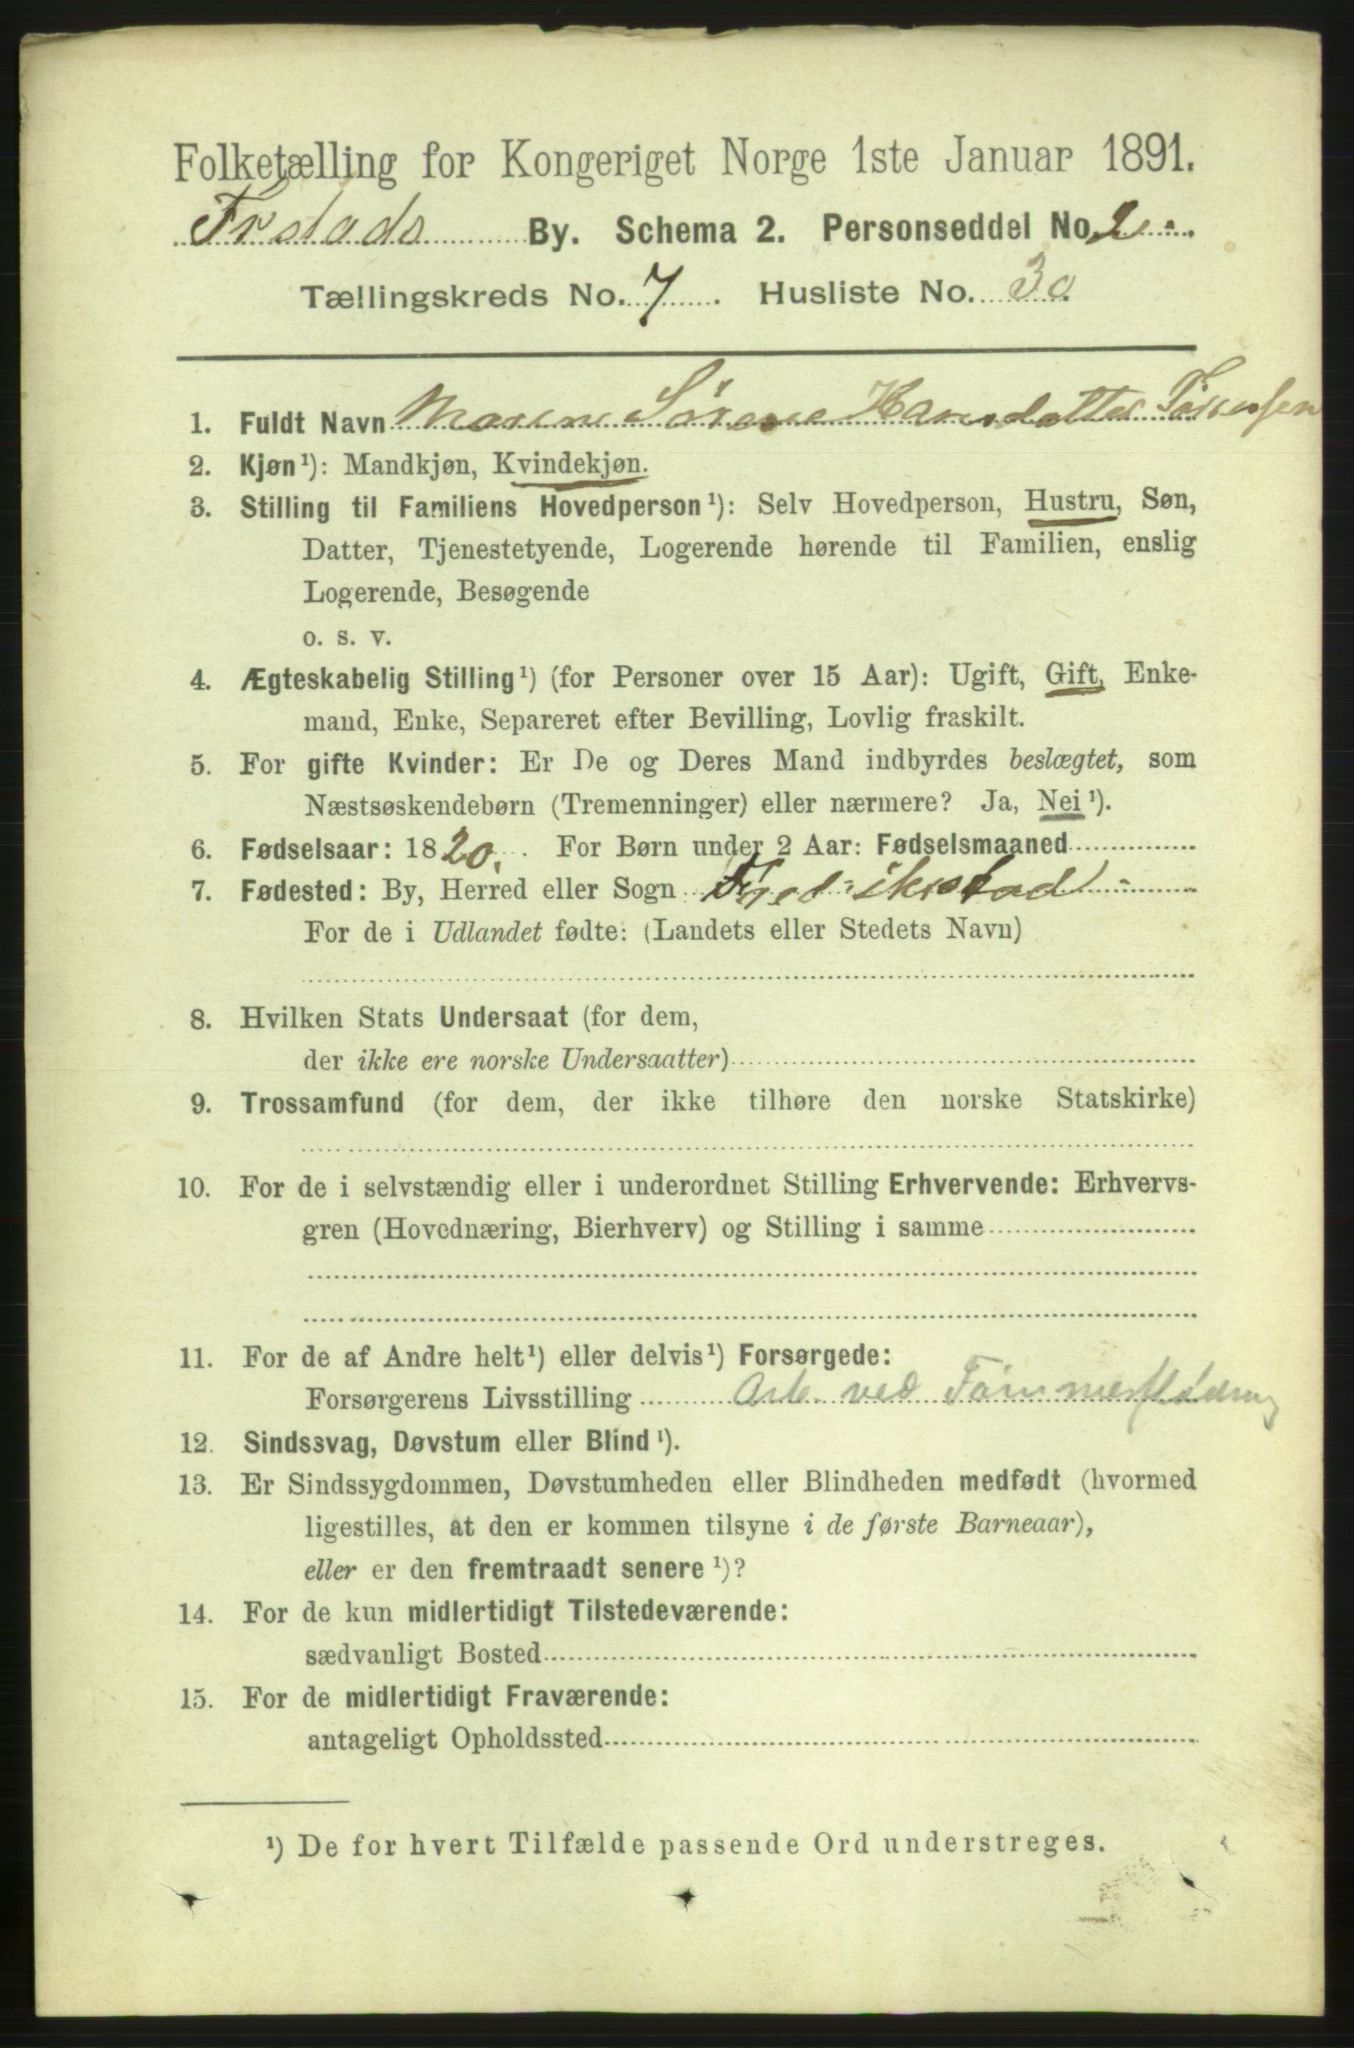 Folketælling for Kongeriget Norge 1ste Januar 1891.
Frstads By. Schema 2. Personseddel No. 2.
Tællingskreds No. 7. Husliste No. 30
1. Fuldt Navn Maren Sørene Hansdatter
2. Kjøn¹): Mandkjøn, Kvindekjøn.
3. Stilling til Familiens Hovedperson¹): Selv Hovedperson, Hustru, Søn,
Datter, Tjenestetyende, Logerende hørende til Familien, enslig
Logerende, Besøgende
o. s. v.
4. Ægteskabelig Stilling¹) (for Personer over 15 Aar): Ugift, Gift, Enke-
mand, Enke, Separeret efter Bevilling, Lovlig fraskilt.
5. For gifte Kvinder: Er De og Deres Mand indbyrdes beslægtet, som
Næstsøskendebørn (Tremenninger) eller nærmere? Ja, Nei¹).
6. Fødselsaar: 1820. For Børn under 2 Aar: Fødselsmaaned
7. Fødested: By, Herred eller Sogn Fredrikstad
For de i Udlandet fødte: (Landets eller Stedets Navn)
8. Hvilken Stats Undersaat (for dem,
der ikke ere norske Undersaatter)
9. Trossamfund (for dem, der ikke tilhøre den norske Statskirke)
10. For de i selvstændig eller i underordnet Stilling Erhvervende: Erhvervs-
gren (Hovednæring, Bierhverv) og Stilling i samme
11. For de af Andre helt¹) eller delvis¹) Forsørgede:
Forsørgerens Livsstilling Arb. ved Tømmerflødning
12. Sindssvag, Døvstum eller Blind¹).
13. Er Sindssygdommen, Døvstumheden eller Blindheden medfødt (hvormed
ligestilles, at den er kommen tilsyne i de første Barneaar),
eller er den fremtraadt senere¹)?
14. For de kun midlertidigt Tilstedeværende:
sædvanligt Bosted
15. For de midlertidigt Fraværende:
antageligt Opholdssted
¹) De for hvert Tilfælde passende Ord understreges.